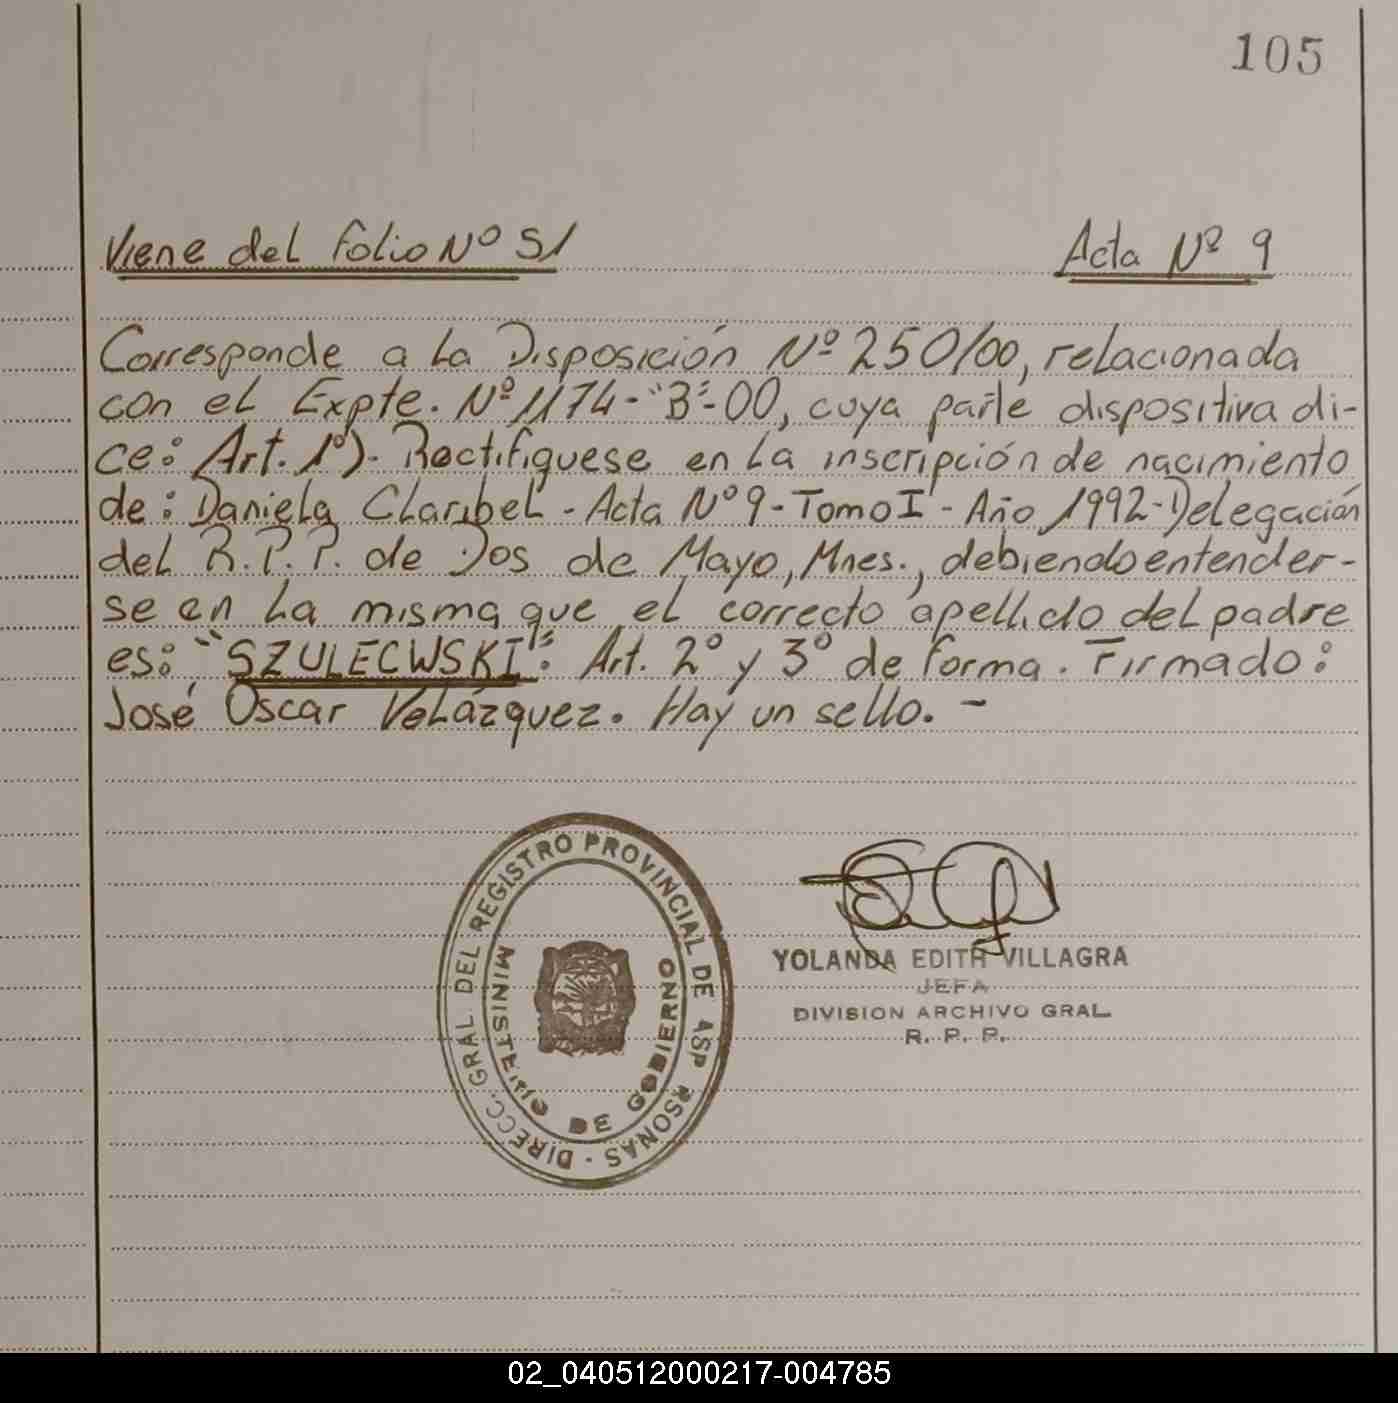 105
Viene del folio Nº 51 Acta Nº 9
Corresponde a la Disposición Nº 250/00, relacionada
con el Expte. Nº 1174-"B"-00, cuya parte dispositiva di-
ce: Art. 1º)- Rectifíquese en la inscripción de nacimiento
de: Daniela Claribel - Acta Nº 9 - Tomo I - Año 1992 - Delegación
del R.P.P. de Dos de Mayo, Mnes., debiendo entender-
se en la misma que el correcto apellido del padre
es: "SZULECWSKI". Art. 2º y 3º de forma. Firmado:
José Oscar Velázquez. Hay un sello. -
DIRECC. GRAL. DEL REGISTRO PROVINCIAL DE AS P RSONAS -
MINISTERIO DE GOBIERNO
YOLANDA EDITH VILLAGRA
JEFA
DIVISION ARCHIVO GRAL.
R. P. P.
02_040512000217-004785